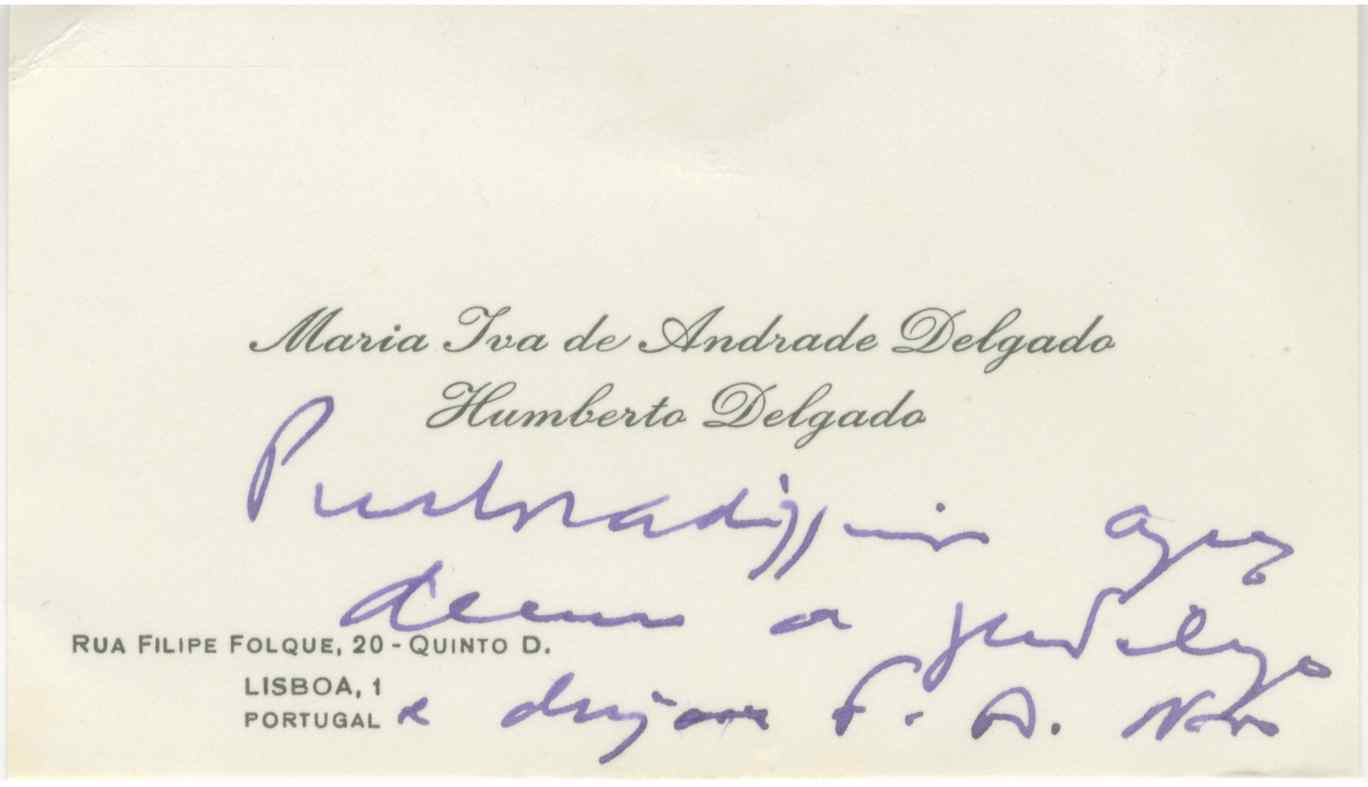 Maria Iva de Andrade Delgado
Humberto Delgado
Penhoradissimos agra
decem a gentileza
RUA FILIPE FOLQUE, 20 - QUINTO D.
LISBOA, 1
PORTUGAL
e desejam F. A. Novo